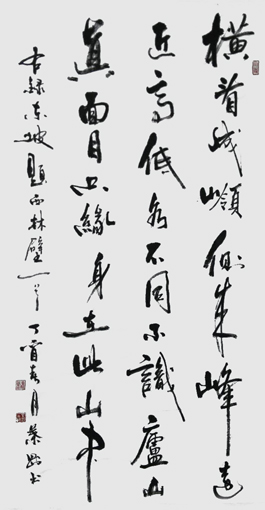 橫看成嶺側成峰遠
近高低各不同不識廬山
真面目只緣身在此山中
右錄東坡題西林壁一首 春月 书